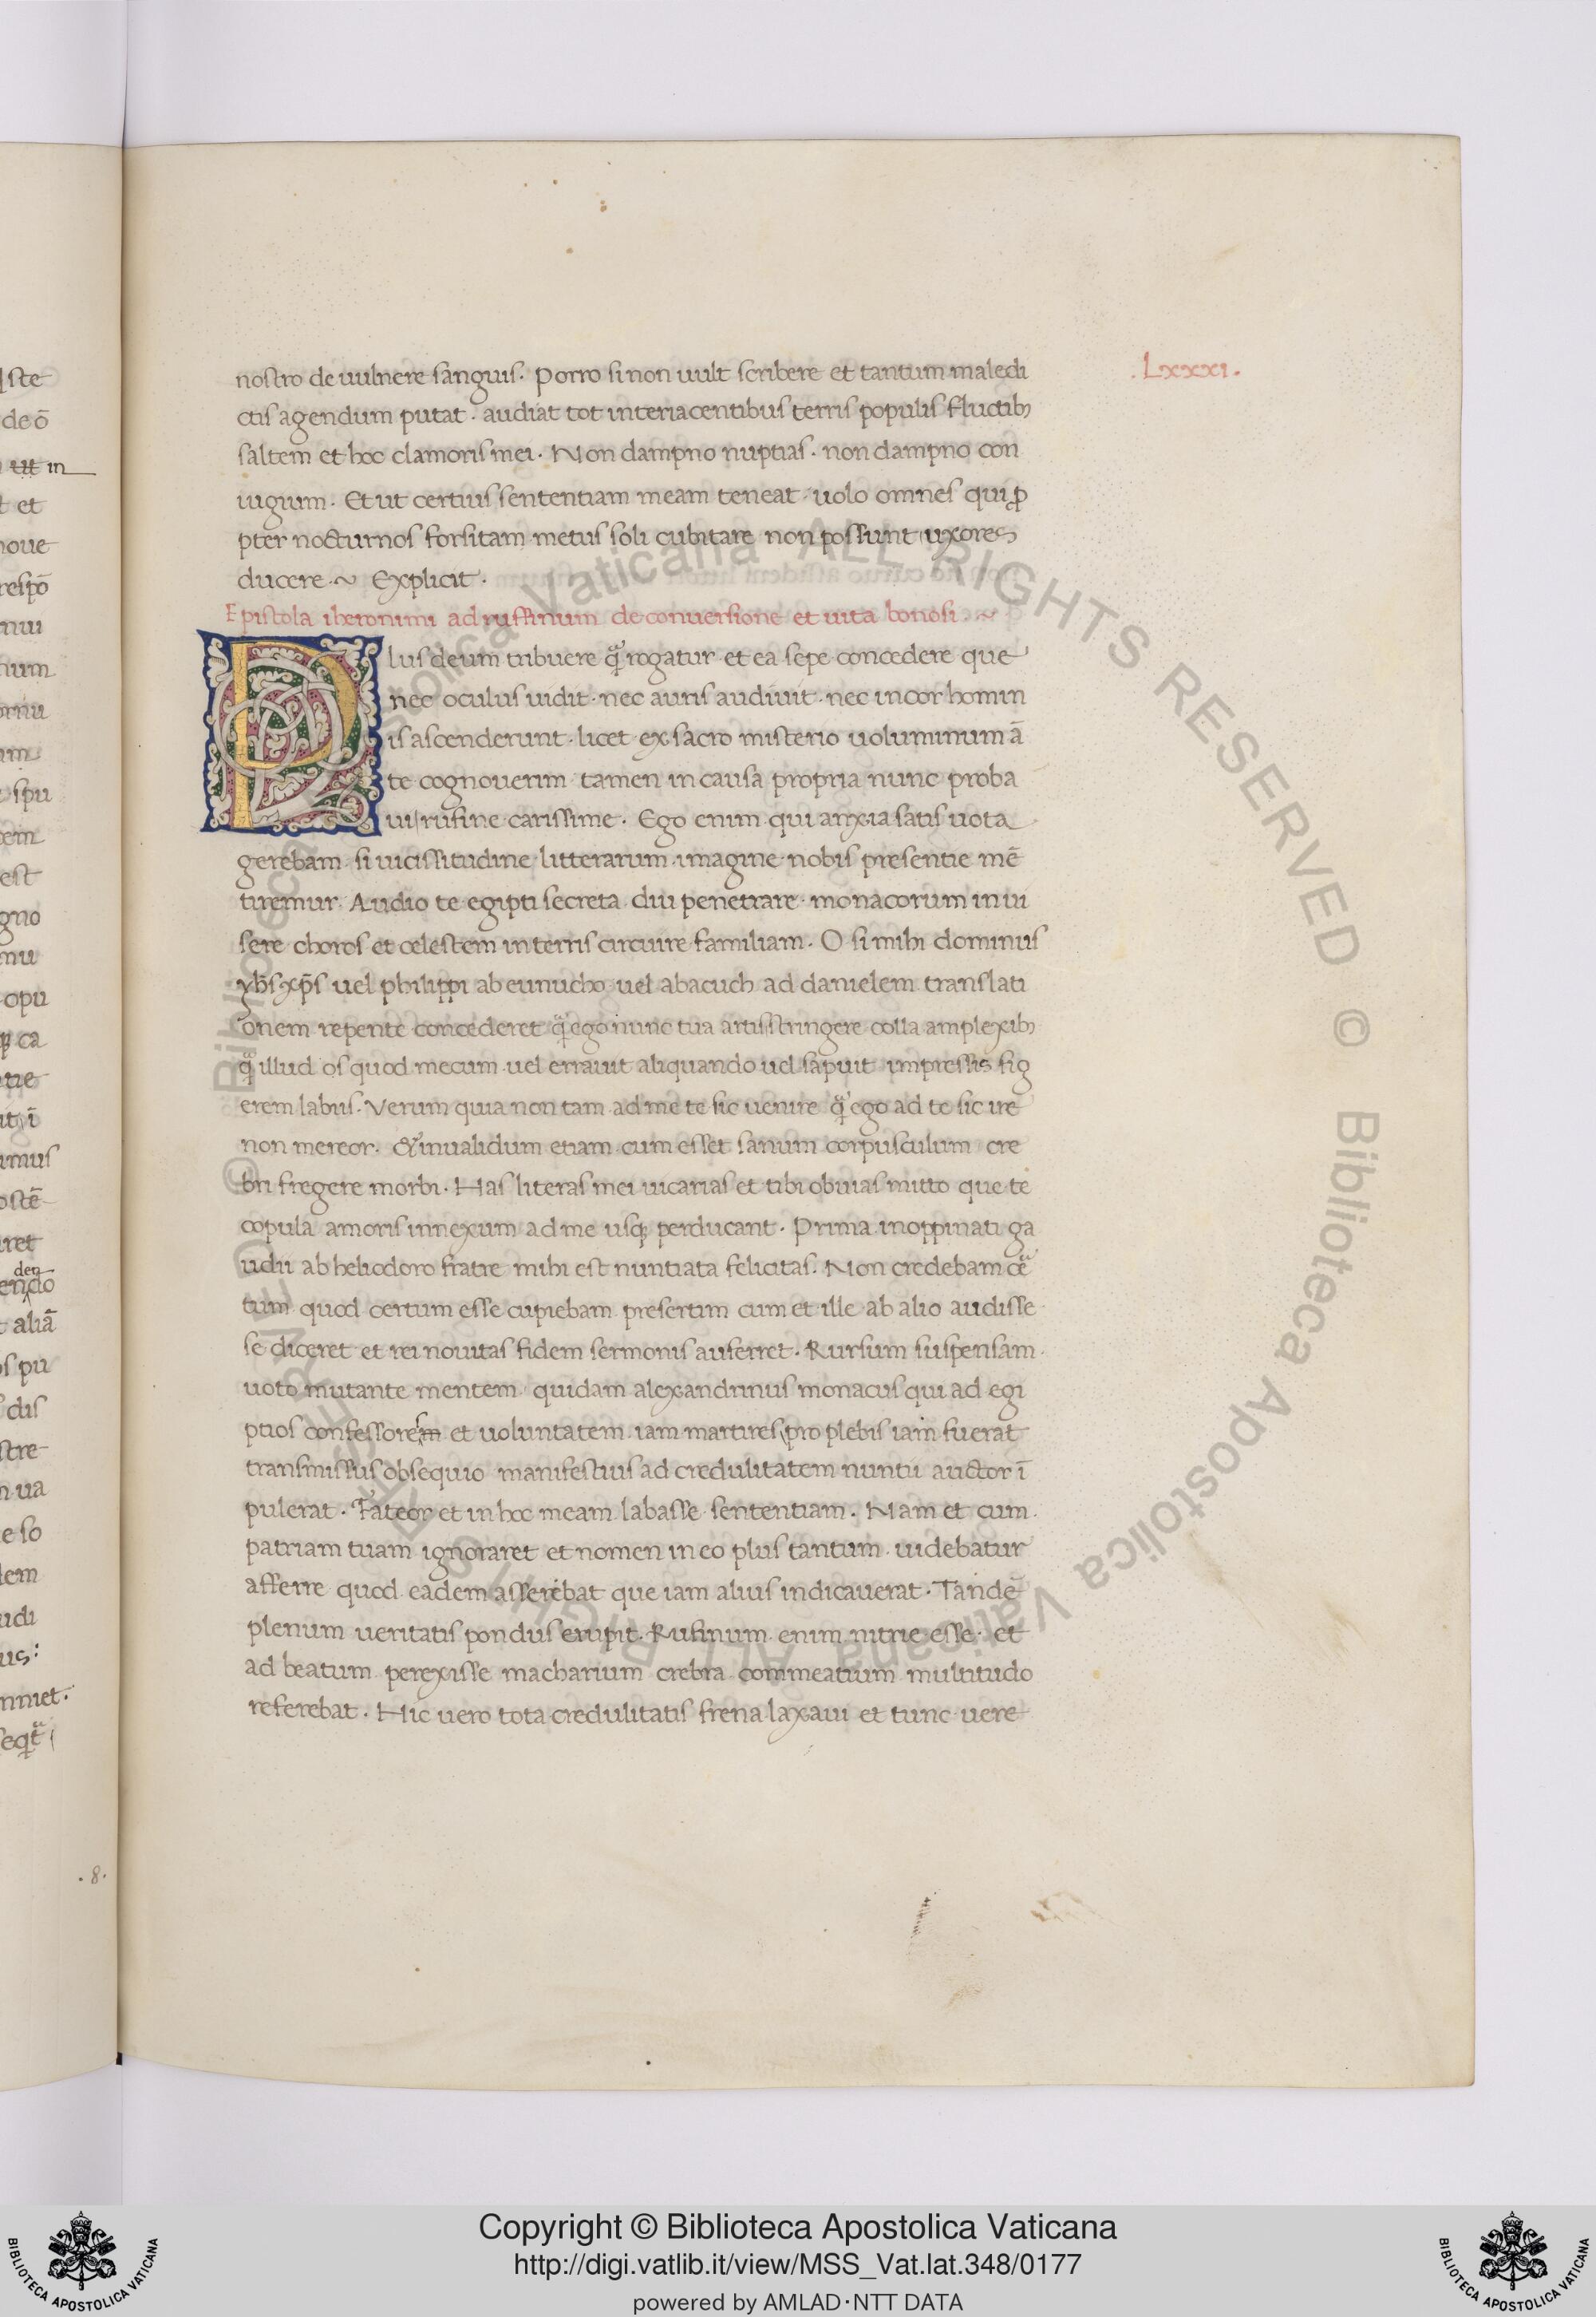 .Lxxxi.
nostro de uulnere sanguis. Porro si non uult scribere et tantum maledi
ctis agendum putat. audiat tot interiacentibus terris populis fluctibꝫ
saltem et hoc clamoris mei. Non dampno nuptias. non dampno con
iugium. Et ut certius sententiam meam teneat uolo omnes qui ꝓ
pter nocturnos forsitam metus soli cubitare non possunt uxores
ducere. ~ Explicit.
Epistola iheronimi ad ruffinum de conuersione et uita bonosi. ~
Plus deum tribuere qͣ̄ rogatur et ea sepe concedere que
nec oculus uidit. nec auris audiuit. nec in cor homin
is ascenderunt. licet ex sacro misterio uoluminum ā
te cognouerim tamen in causa propria nunc proba
ui rufine carissime. Ego enim qui anxia satis uota
gerebam si uicissitudine litterarum imagine nobis presentie mē
tiremur. Audio te egipti secreta diu penetrare. monacorum in ui
sere choros et celestem in terris circuire familiam. O si mihi dominus
yhs̄ xp̄s uel philippi ab eunucho uel abacuch ad danielem translati
onem repente concederet qͣ̄ ego nunc tua artis stringere colla amplexibꝫ
qͣ̄ illud os quod mecum uel errauit aliquando uel sapuit impressis fig
erem labiis. Verum quia non tam ad me te sic uenire qͣ̄ ego ad te sic ire
non mereor. & inualidum etiam cum esset sanum corpusculum cre
bri fregere morbi. Has literas mei uicarias et tibi obuias mitto que te
copula amoris innexum ad me usqꝫ perducant. Prima inoppinati ga
udii ab heliodoro fratre mihi est nuntiata felicitas. Non credebam ceͣ
tum quod certum esse cupiebam presertim cum et ille ab alio audisse
se diceret et rei nouitas fidem sermonis auferret. Rursum suspensam
uoto mutante mentem quidam alexandrinus monacus qui ad egi
ptios confessorem s et uoluntatem iam martires pro plebis iam fuerat
transmissus obsequio manifestius ad credulitatem nuntii auctor ī
pulerat. Fateor et in hoc meam labasse sententiam. Nam et cum
patriam tuam ignoraret et nomen in eo plus tantum uidebatur
afferre quod eadem asserebat que iam alius indicauerat. Tandē
plenum ueritatis pondus erupit. Rufinum enim nitrie esse et
ad beatum perexisse macharium crebra commeatium multitudo
referebat. Hic uero tota credulitatis frena laxaui et tunc uere
.8.
Copyright © Biblioteca Apostolica Vaticana
http://digi.vatlib.it/view/MSS_Vat.lat.348/0177
powered by AMLAD·NTT DATA
BIBLIOTECA APOSTOLICA VATICANA
BIBLIOTECA APOSTOLICA VATICANA